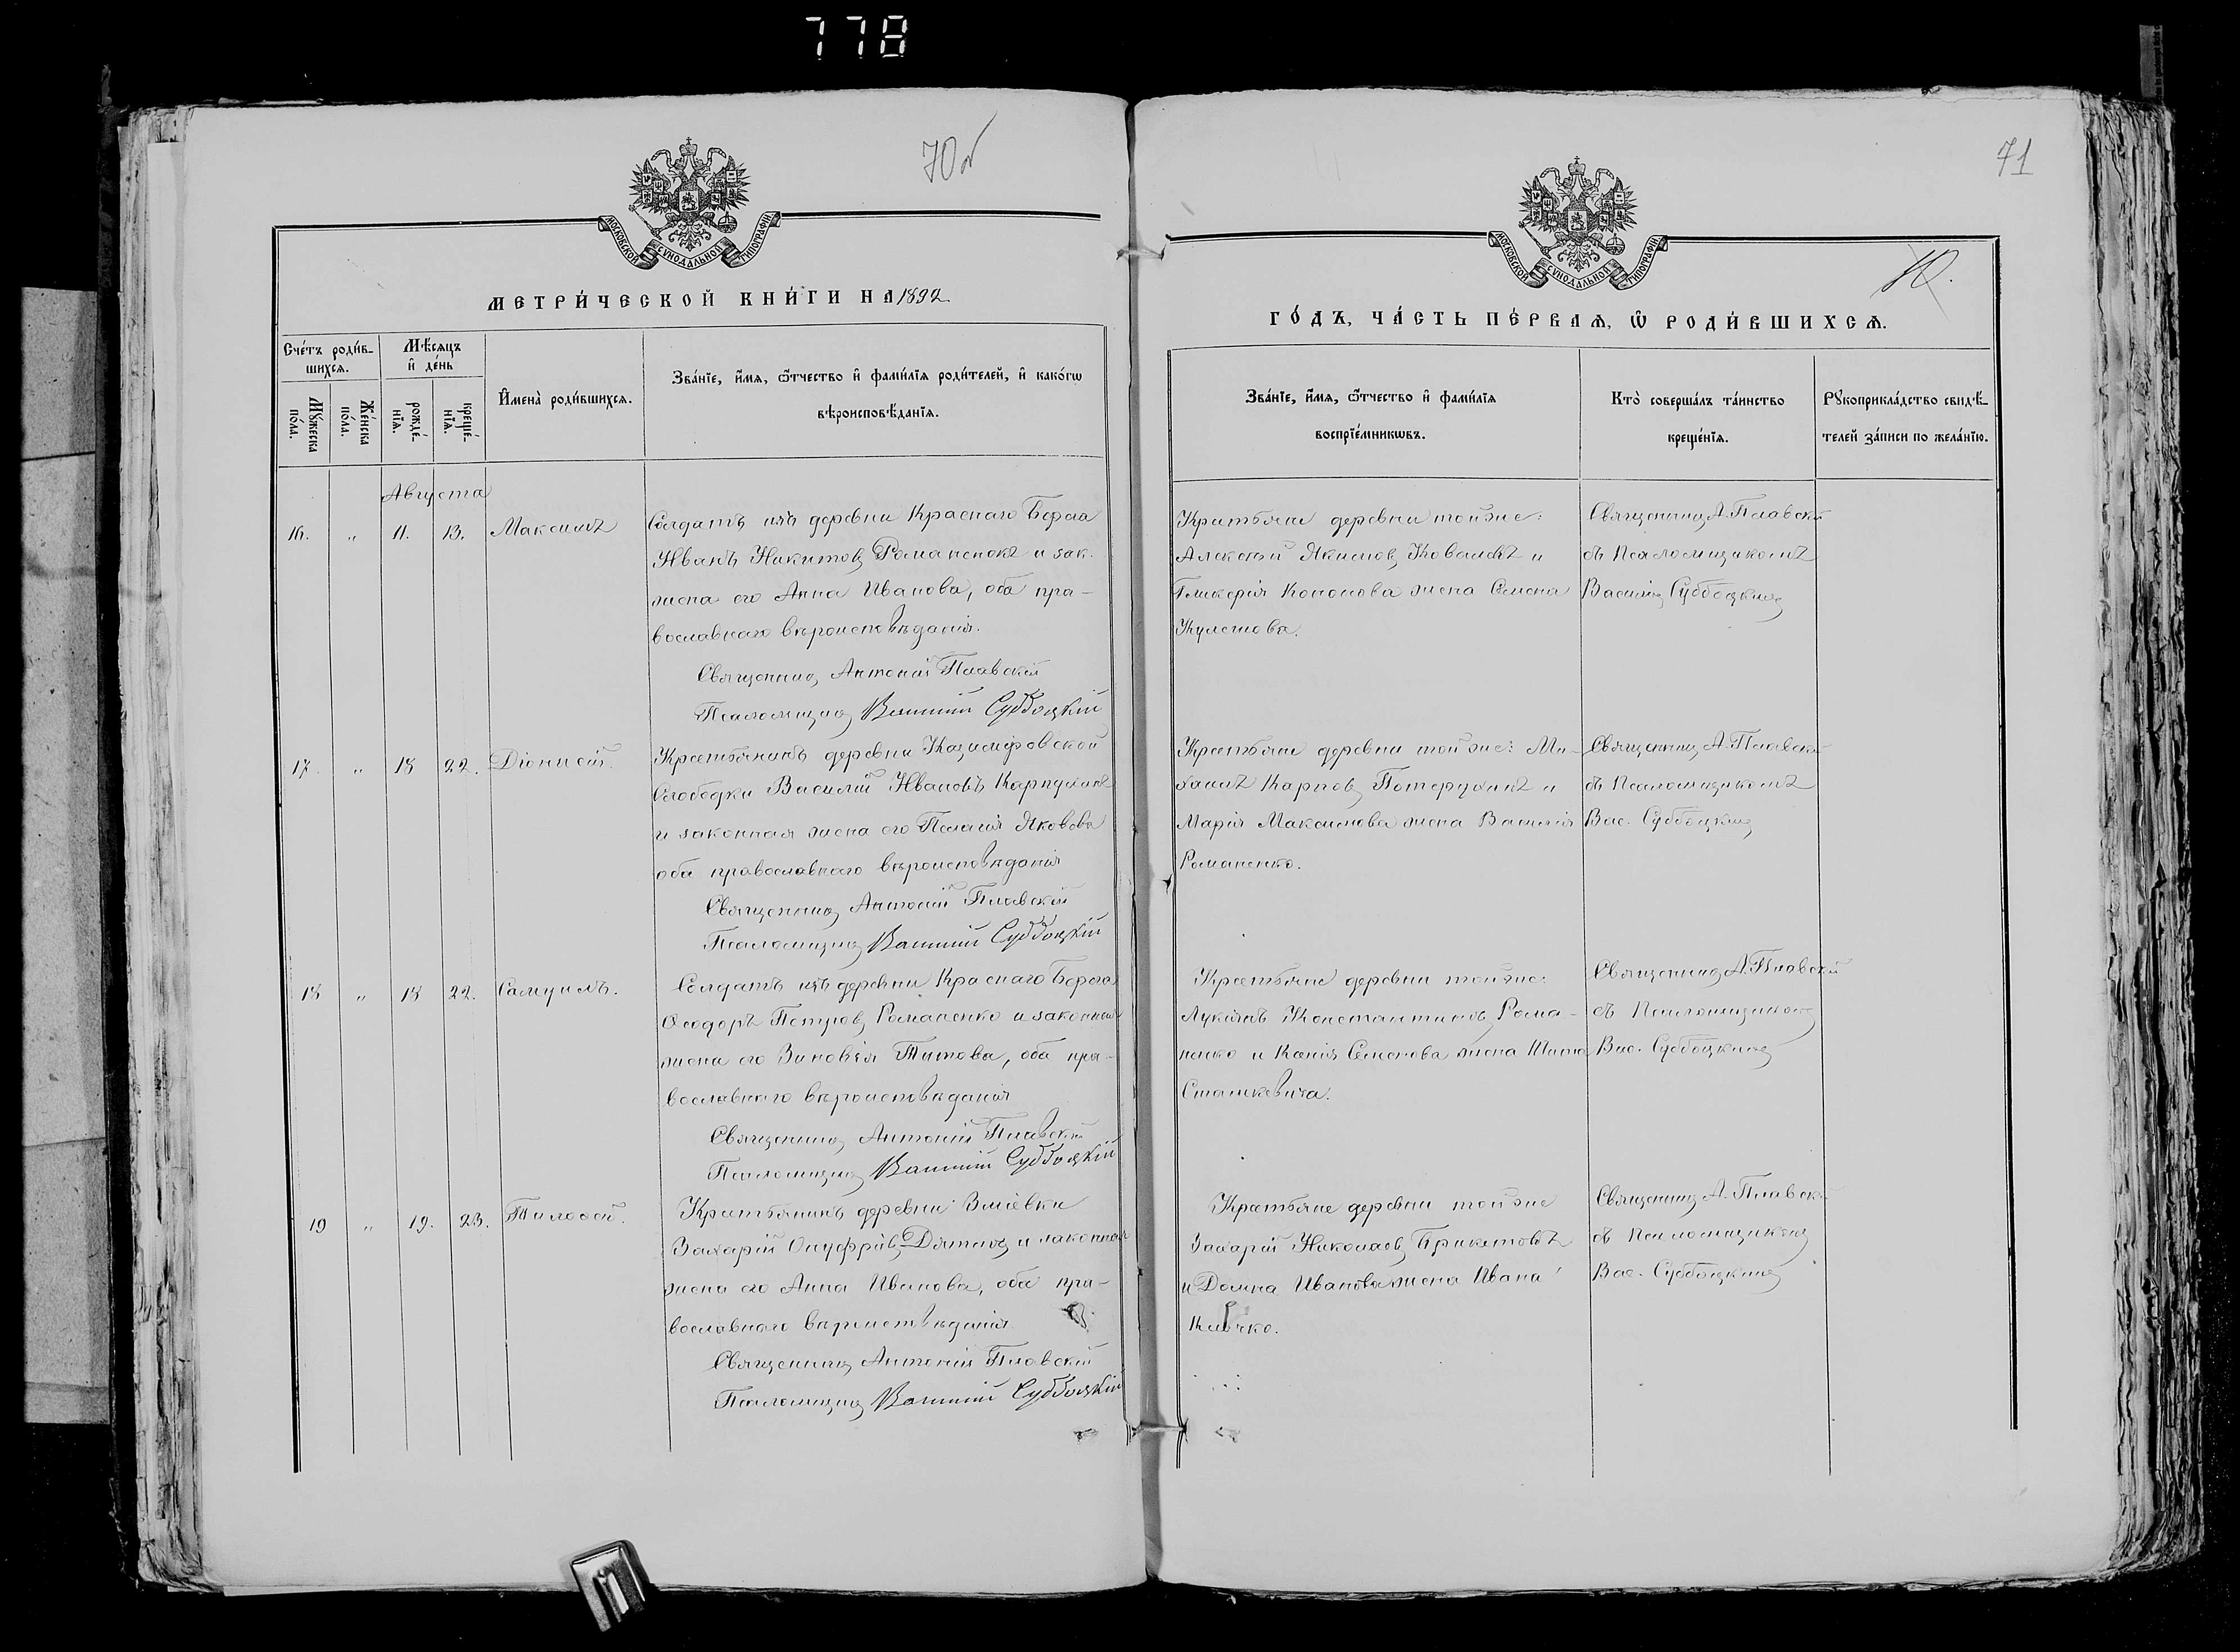 778
70 об
МОСКОВСКОЙ СѴНОДАЛЬНОЙ ТИПОГРАФІИ
МЕТРИ́ЧЕСКОЙ КНИ́ГИ НА 1892
Сче́тъ роди́в-
шихсѧ.
Мѣ́сѧцъ
и҆ де́нь
Мꙋ́жеска
по́ла.
Же́нска
по́ла.
рожде́-
нїѧ.
креще́-
нїѧ.
И҆мена̀ роди́вшихсѧ.
Зва́нїе, и҆́мѧ, ѻ҆́тчество и҆ фами́лїѧ роди́телей, и҆ како́гѡ
вѣроисповѣ́данїѧ.
Августа
16. „ 11. 13. Максимъ
Солдатъ изъ деревни Краснаго Берега
Иванъ Никитовъ Романенокъ и зак.
жена его Анна Иванова, оба пра-
вославнаго вѣроисповѣданія.
Священникъ Антоній Плавскій
Псаломщикъ Василій Субботцкій
17. „ 18 22. Діонисій.
Крестьянинъ деревни Казимировской
Слободки Василій Ивановъ Карпухинъ
и законная жена его Пелагія Яковова
оба православнаго вѣроисповѣданія
Священникъ Антоній Плавскій
Псаломщикъ Василій Субботцкій
18 „ 18 22. Самуилъ.
Солдатъ изъ деревни Краснаго Берега
Ѳеодоръ Петровъ Романенко и законная
жена его Зиновія Титова, оба пра-
вославнаго вѣроисповѣданія
Священникъ Антоній Плавскій
Псаломщикъ Василій Субботцкій
19 „ 19. 23. Тимоѳей.
Крестьянинъ деревни Змѣевки
Захарій Онуфріевъ Дятловъ и законная
жена его Анна Иванова, оба пра-
вославнаго вѣроисповѣданія
Священникъ Антоній Плавскій
Псаломщикъ Василій Субботцкій
71
МОСКОВСКОЙ СѴНОДАЛЬНОЙ ТИПОГРАФІИ
ГО́ДЪ, ЧА́СТЬ ПЕ́РВАѦ, Ѡ҆ РОДИ́ВШИХСѦ.
Зва́нїе, и҆́мѧ, ѻ҆́тчество и҆ фами́лїѧ
воспрїе́мникѡвъ.
Кто̀ соверша́лъ та́инство
креще́нїѧ.
Рꙋкоприкла́дство свидѣ́-
телей за́писи по жела́нїю.
Крестьяне деревни тойже:
Алексѣй Якимовъ Ковалевъ и
Гликерія Кононова жена Семена
Кулешова.
Священникъ А. Плавскій
съ Псаломщикомъ
Василіемъ Субботцкимъ
Крестьяне деревни тойже: Ми-
хаилъ Карповъ Потерухинъ и
Марія Максимова жена Василія
Романенко.
Священникъ А. Плавскій
съ Псаломщикомъ
Вас. Субботцкимъ
Крестьяне деревни тойже:
Лукіанъ Константиновъ Рома-
ненко и Ксенія Семенова жена
Сташкевича.
Священникъ А. Плавскій
съ Псаломщикомъ
Вас. Субботцкимъ
Крестьяне деревни тойже
Захарій Николаевъ
и Домна Иванова жена Ивана
Клочко.
Священникъ А. Плавскій
съ Псаломщикомъ
Вас. Субботцкимъ